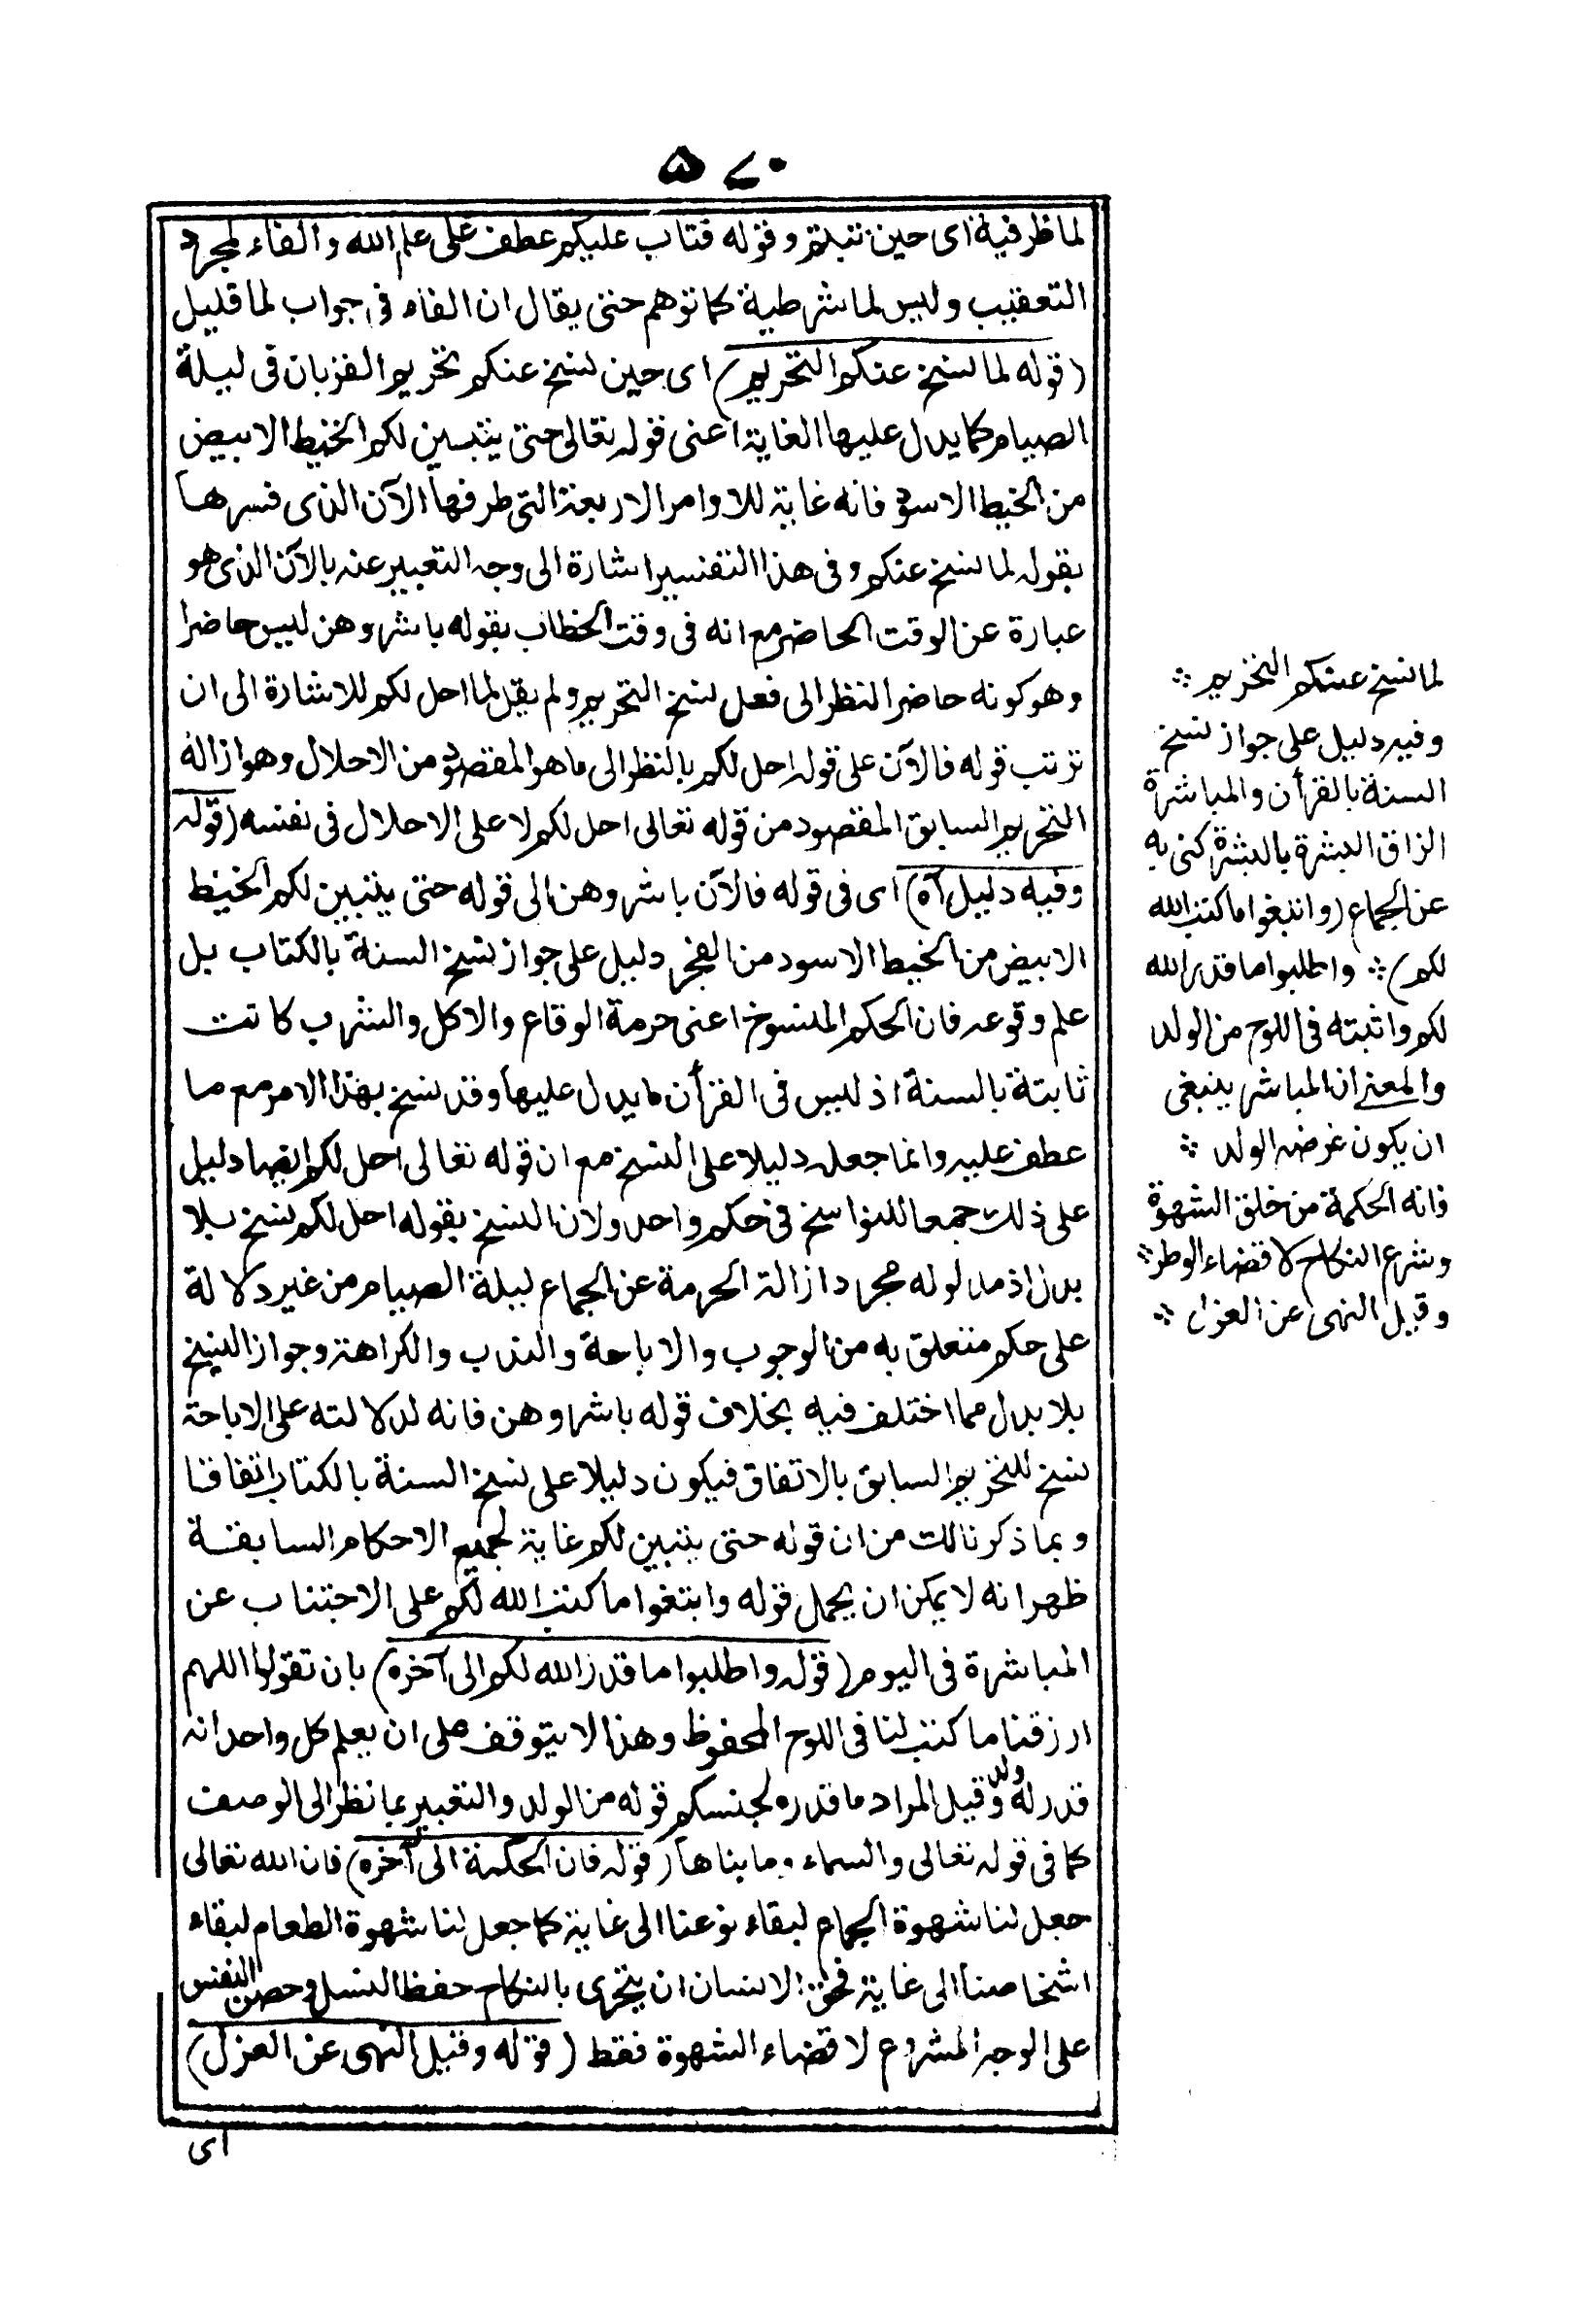 ٥٧٠
لما ظرفية اى حين تبتم وقوله فتاب عليكم عطف على علم الله والفاء لمجرد
التعقيب وليس لما شرطية كما توهم حتى يقال ان الفاء فى جواب لما قليل
(قوله لما نسخ عنكم التحريم) اى حين نسخ عنكم تحريم القربان فى ليلة
الصيام كما يدل عليها الغاية اعنى قوله تعالى حتى يتبين لكم الخيط الابيض
من الخيط الاسود فانه غاية للاوامر الاربعة التى ظرفها الآن الذى فسرها
بقوله لما نسخ عنكم وفى هذا التفسير اشارة الى وجه التعبير عنه بالآن الذى هو
عبارة عن الوقت الحاضر مع انه فى وقت الخطاب بقوله باشروهن ليس حاضرا
وهو كونه حاضرا لنظر الى فعل نسخ التحريم ولم يقل لما احل لكم للاشارة الى ان
ترتب قوله فالآن على قوله احل لكم بالنظر الى ما هو المقصود من الاحلال وهو ازالة
التحريم السابق المقصود من قوله تعالى احل لكم لا على الاحلال فى نفسه (قوله
وفيه دليل آه) اى فى قوله فالآن باشروهن الى قوله حتى يتبين لكم الخيط
الابيض من الخيط الاسود من الفجر دليل على جواز نسخ السنة بالكتاب بل
علم وقوعه فان الحكم المنسوخ اعنى حرمة الوقاع والاكل والشرب كانت
ثابتة بالسنة اذ ليس فى القرأن ما يدل عليها وقد نسخ بهذا الامر مع ما
عطف عليه وانما جعله دليلا على النسخ مع ان قوله تعالى احل لكم ايضا دليل
على ذلك جمعا للنواسخ فى حكم واحد ولان النسخ بقوله احل لكم نسخ بلا
بدل اذ مدلوله مجرد ازالة الحرمة عن الجماع ليلة الصيام من غير دلالة
على حكم متعلق به من الوجوب والاباحة والندب والكراهة وجواز النسخ
بلا بدل مما اختلف فيه بخلاف قوله باشروهن فانه لدلالته على الاباحة
نسخ للتحريم السابق بالاتفاق فيكون دليلا على نسخ السنة بالكتاب اتفاقا
وبما ذكرنا لك من ان قوله حتى يتبين لكم غاية لجميع الاحكام السابقة
ظهر انه لا يمكن ان يحمل قوله وابتغوا ما كتب الله لكم على الاجتناب عن
المباشرة فى اليوم (قوله واطلبوا ما قدر الله لكم الى آخره) بان تقولوا اللهم
ارزقنا ما كتب لنا فى اللوح المحفوظ وهذا لا يتوقف على ان يعلم كل واحد انه
قدر له ولد وقيل المراد ما قدره لجنسكم قوله من الولد والتعبير بما نظر الى الوصف
كما فى قوله تعالى والسماء وما بناها (قوله فان الحكمة الى آخره) فان الله تعالى
جعل لنا شهوة الجماع لبقاء نوعنا الى غاية كما جعل لنا شهوة الطعام لبقاء
اشخاصنا الى غاية فحق الانسان ان يتحرى بالنكاح حفظ النسل وحصن النفس
على الوجه المشروع لا قضاء الشهوة فقط (قوله وقيل النهى عن العزل)
اى
لما نسخ عنكم التحريم ؞
وفيه دليل على جواز نسخ
السنة بالقرأن والمباشرة
الزاق البشرة بالبشرة كنى به
عن الجماع (وابتغوا ما كتب الله
لكم) ؞ واطلبوا ما قدر الله
لكم واثبته فى اللوح من الولد
والمعنى ان المباشر ينبغى
ان يكون غرضه الولد ؞
فانه الحكمة من خلق الشهوة
وشرع النكاح لا قضاء الوطر ؞
وقيل النهى عن العزل ؞